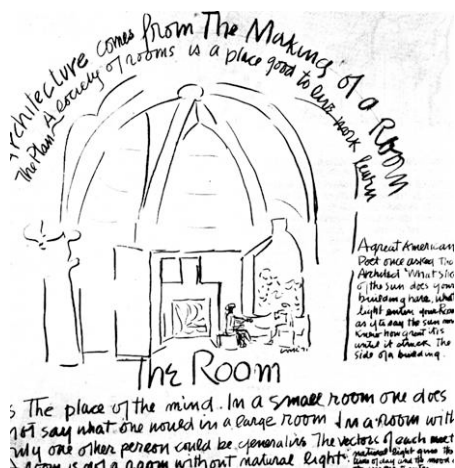 Architecture comes from The Making of a Room
The Plan A society of rooms is a place good to live work learn
A great American
Poet once asked the
Architect 'What slice
of the sun does your
building have, what
light enters your Room
as if to say the sun never
knew how great it is
until it struck the
side of a building.
The Room
is The place of the mind. In a small room one does
not say what one would in a large room In a room with
only one other person could be generative The vectors of each meet
a room is not a room without natural light
natural light gives the
time of day and the mood